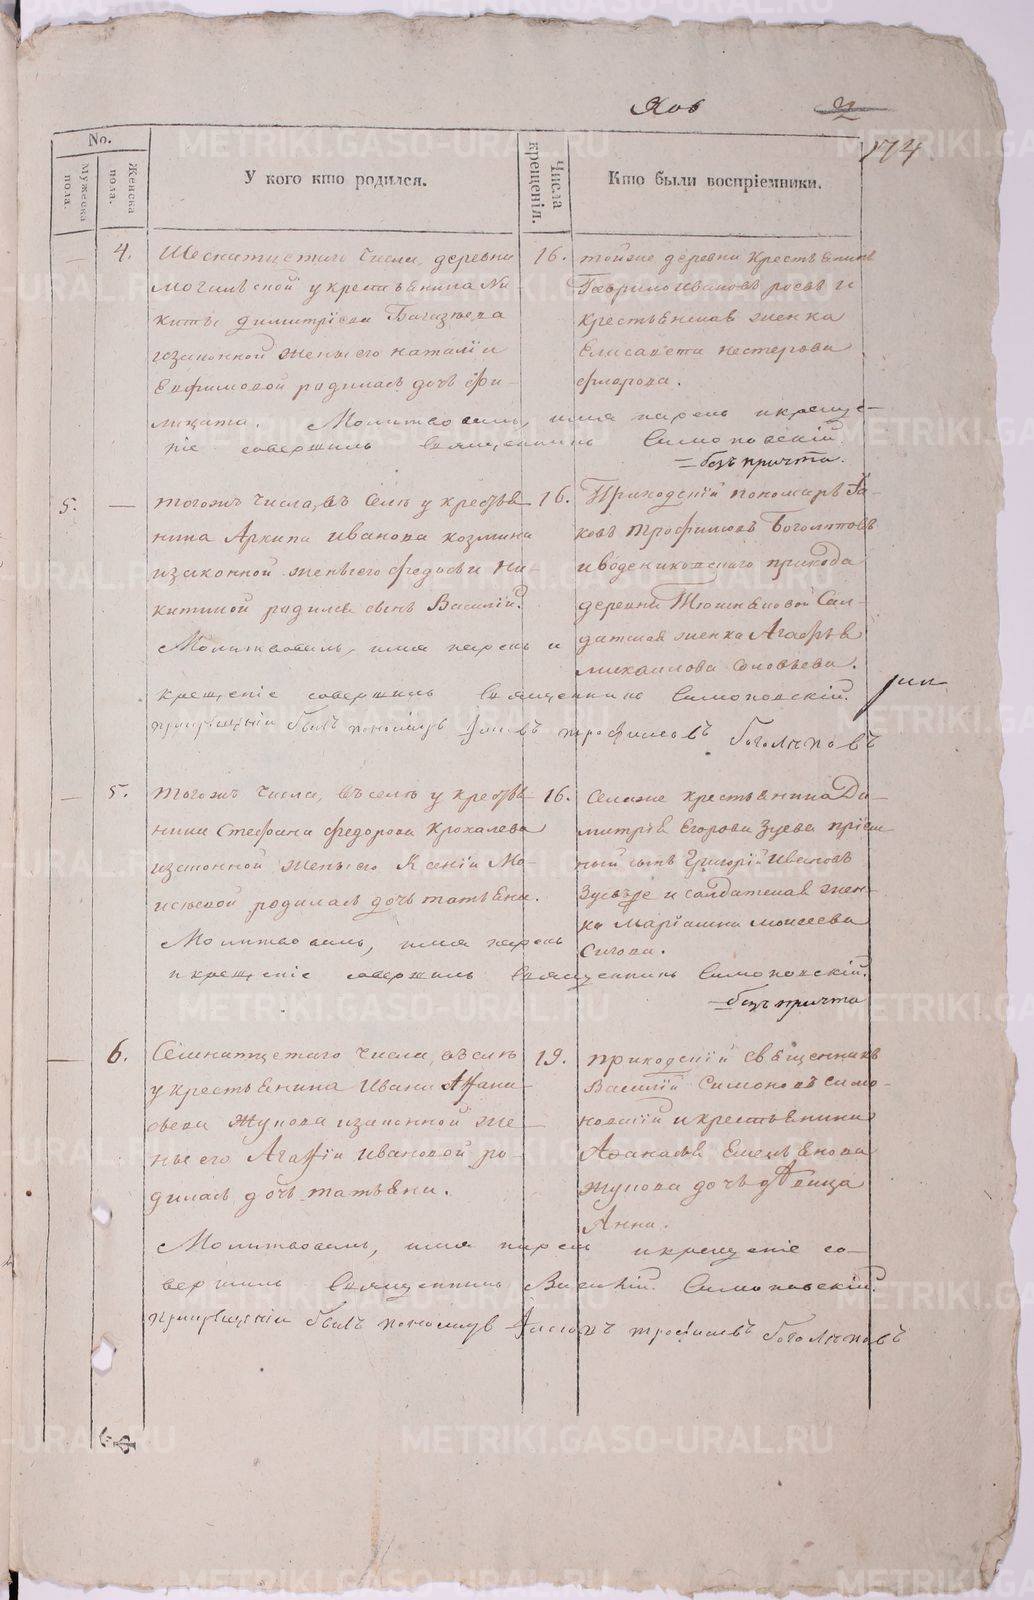 174
No.
Мужеска пола.
Женска пола.
У кого кто родился.
Числа крещенія.
Кто были воспріемники.
4.
Шеснатцетаго числа, деревни
могильской у крестьянина Ни-
киты димитріева
иззаконной жены его наталіи
Евфимовой родилась дочь Фи-
лицата. Молитвовалъ, имя нарекъ и креще-
ніе совершилъ Священникъ Симоновскій
безъ причта.
16.
тойже деревни крестьянинъ
Гаврило Ивановъ и
крестьянская женка
Елисавета нестерова
5.
тогожъ числа, въ селе у крестья
нина Архипа иванова козмина
иззаконной жены его федосьи Ни-
китиной родился сынъ Василій.
Молитвовалъ, имя нарекъ и
крещеніе совершилъ Священникъ Симоновскій.
прикрещеніи былъ пономарь Іаковъ трофимовъ Боголеповъ
16.
Приходскій пономарь Іа-
ковъ Трофимовъ Боголеповъ
и водениковскаго прихода
деревни Сал-
датская женка Агафья
михаилова Соловьева.
5.
тогожъ числа, въ селе у крестья
нина Стефана федорова Крохалева
иззаконной жены его Ксеніи Мо-
исеевой родилась дочь татьяна.
Молитвовалъ, имя нарекъ
и крещеніе совершилъ Священникъ Симоновскій.
безъ причта
16.
Селаже крестьянина Ди-
митрія Егорова Зуева пріем-
ный сынъ Григорій Ивановъ
Зуевъ же и салдатская жен-
ка Маріамна моисеева
Сигова.
6.
Семнатцетаго числа, въ селе
у крестьянина Ивана Афана-
сьева Жукова иззаконной же-
ны его Агафіи Ивановой ро-
дилась дочь татьяна.
Молитвовалъ, имя нарекъ и крещеніе со-
вершилъ Священникъ Василій Симоновскій.
прикрещеніи былъ пономарь Іаковъ трофимовъ Боголеповъ
19.
приходскій священникъ
Василій Симоновъ Симо-
новскій и крестьянина
Афанасья Емельянова
жукова дочь девица
Анна.
METRIKI.GASO-URAL.RU